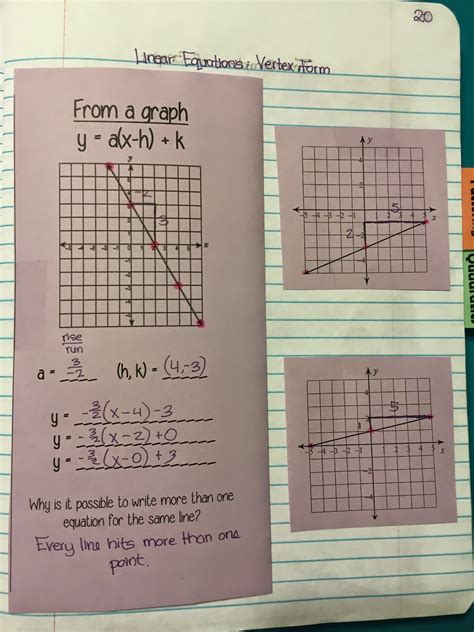 20
Linear Equations: Vertex Form
From a graph
y = a(x-h) + k
y
-2
3
x
rise
run
a = 3/-2 (h, k) = (4,-3)
y = -3/2(x-4)-3
y = -3/2(x-2)+0
y = -3/2(x-0)+3
Why is it possible to write more than one
equation for the same line?
Every line hits more than one
point.
y
5
-5 -4 -3 -2 -1 1 2 3 4 5 x
2
y
5
-5 -4 -3 -2 -1 1 2 3 4 5 x